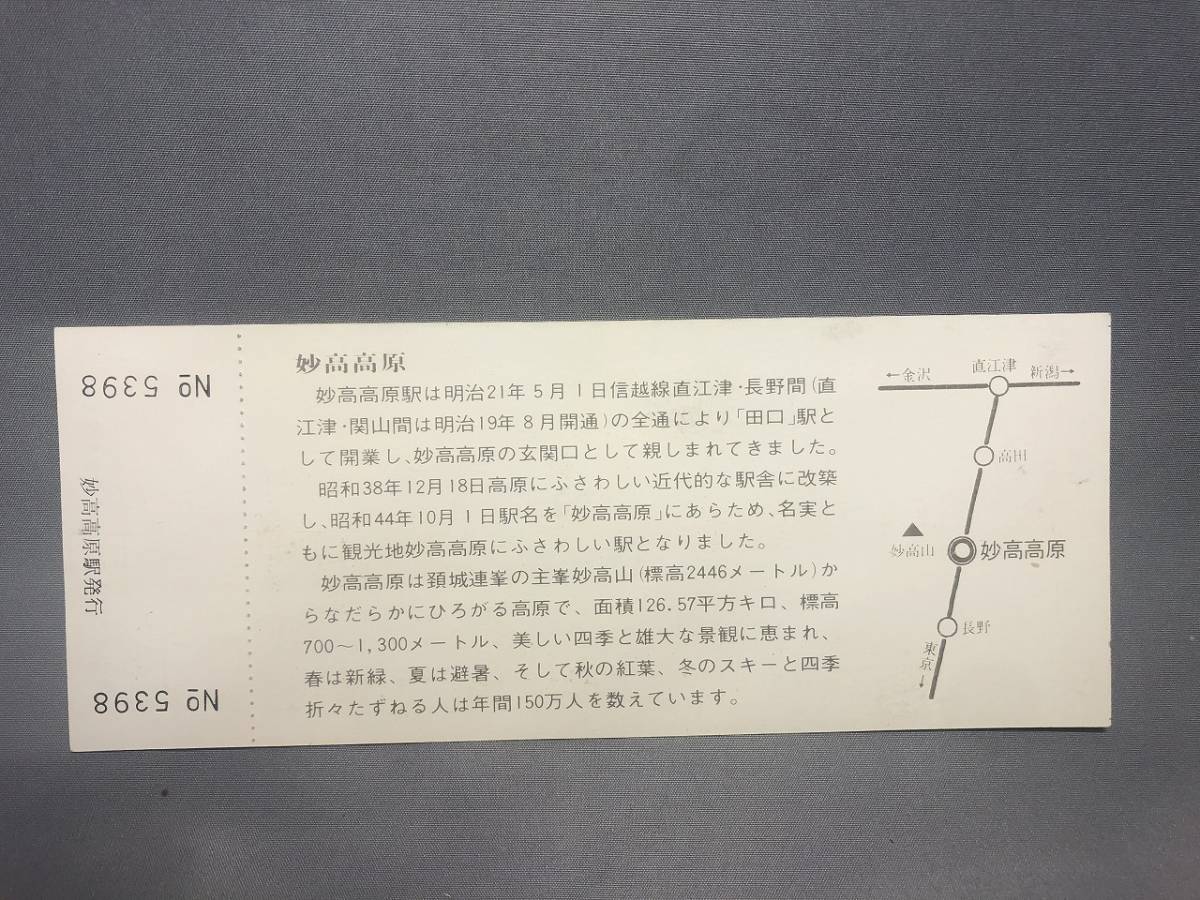 № 5398
妙高高原駅発行
№ 5398
妙高高原
妙高高原駅は明治21年5月1日信越線直江津・長野間(直
江津・関山間は明治19年8月開通)の全通により「田口」駅と
して開業し、妙高高原の玄関口として親しまれてきました。
昭和38年12月18日高原にふさわしい近代的な駅舎に改築
し、昭和44年10月1日駅名を「妙高高原」にあらため、名実と
もに観光地妙高高原にふさわしい駅となりました。
妙高高原は頚城連峯の主峯妙高山(標高2446メートル)か
らなだらかにひろがる高原で、面積126.57平方キロ、標高
700～1,300メートル、美しい四季と雄大な景観に恵まれ、
春は新緑、夏は避暑、そして秋の紅葉、冬のスキーと四季
折々たずねる人は年間150万人を数えています。
←金沢
直江津
新潟→
高田
妙高山
妙高高原
長野
東京→